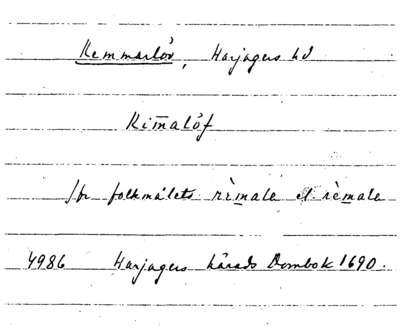 Kemmarlöv, Harjagers hd
Kim̅alöf
jfr folkmålets rèmala el. rèmala
4986 Harjagers härads Dombok 1690.